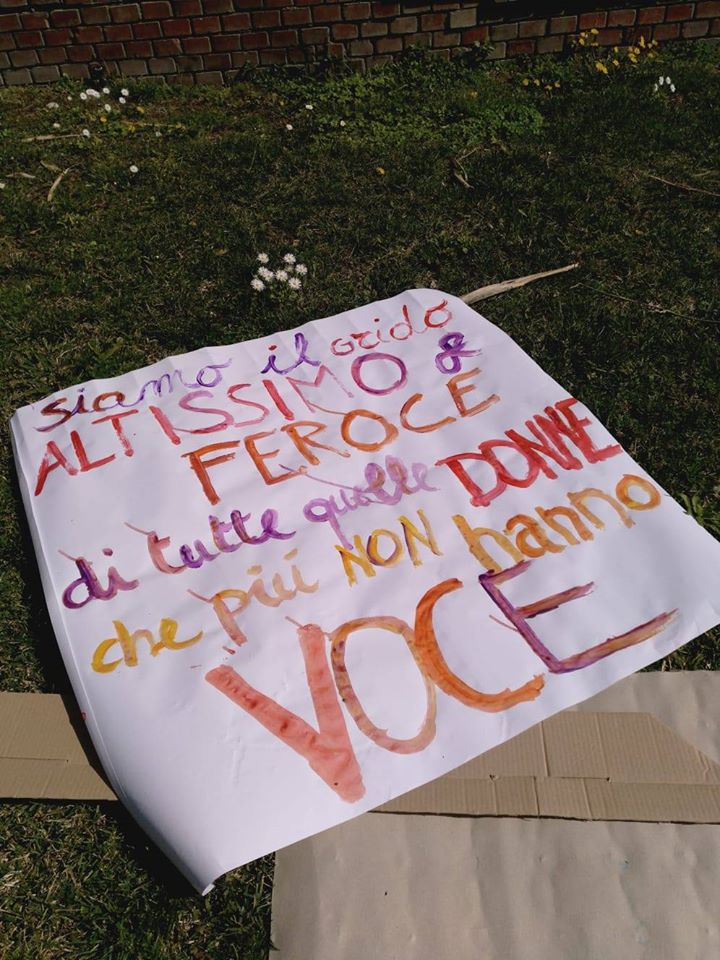 siamo il grido
ALTISSIMO e
FEROCE
di tutte quelle DONNE
che più NON hanno
VOCE